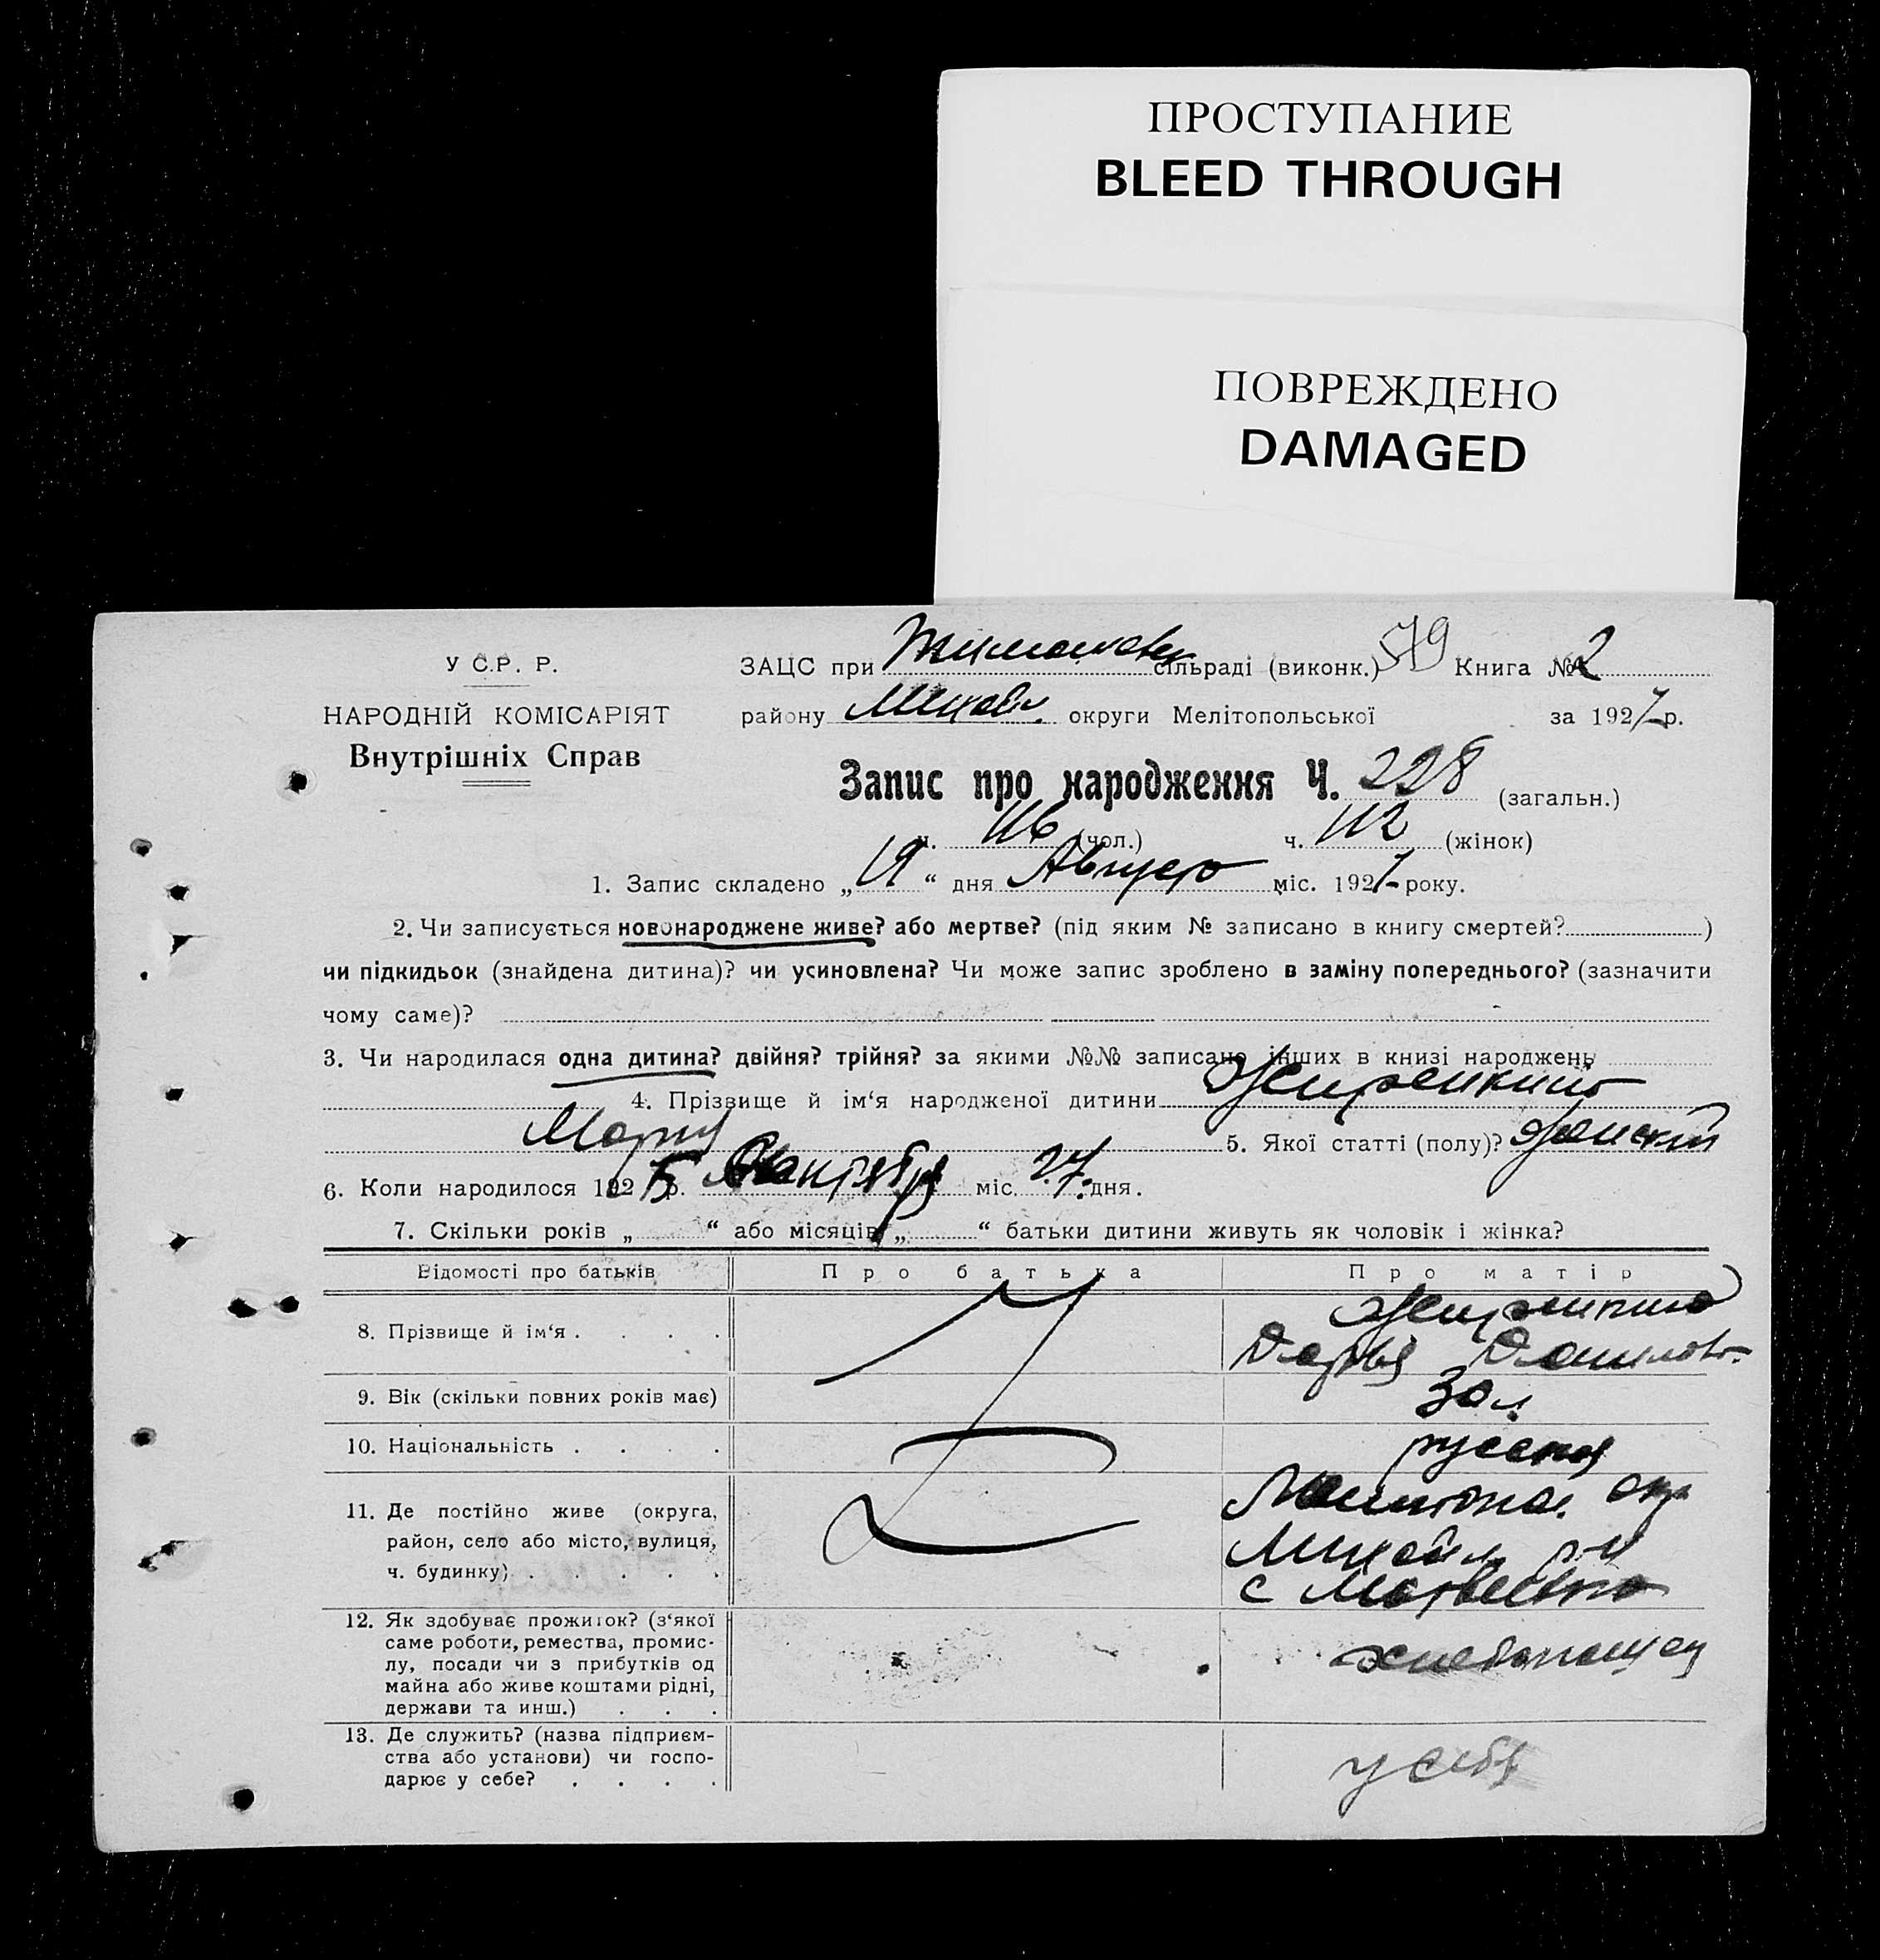 ПРОСТУПАНИЕ
BLEED THROUGH
ПОВРЕЖДЕНО
DAMAGED
У С.Р. Р.
НАРОДНІЙ КОМІСАРІЯТ
Внутрішніх Справ
ЗАЦС при сільраді (виконк.) 579 Книга № 2
району округи Мелітопольської за 1927 р.
Запис про народження Ч. 228 (загальн.)
ч. 116 (чол.) ч. 112 (жінок)
1. Запис складено „19“ дня Август міс. 1927 року.
2. Чи записується новонароджене живе? або мертве? (під яким № записано в книгу смертей? )
чи підкидьок (знайдена дитина)? чи усиновлена? Чи може запис зроблено в заміну попереднього? (зазначити
чому саме)?
3. Чи народилася одна дитина? двійня? трійня? за якими №№ записано інших в книзі народжень
4. Прізвище й ім‘я народженої дитини
Мария 5. Якої статті (полу)? женский
6. Коли народилося 1925 р. міс. 27 дня.
7. Скільки років „ “ або місяців „ “ батьки дитини живуть як чоловік і жінка?
Відомості про батьків Про батька Про матір
8. Прізвище й ім‘я . . . .
Дарья Данилов.
9. Вік (скільки повних років має) 30 л.
10. Національність . . . . русская
11. Де постійно живе (округа,
район, село або місто, вулиця,
ч. будинку) . . . . .
окр
р-н
с Матвеевка
12. Як здобуває прожиток? (з‘якої
саме роботи, ремества, промис-
лу, посади чи з прибутків од
майна або живе коштами рідні,
держави та инш.) . . .
хлебопашец
13. Де служить? (назва підприєм-
ства або установи) чи госпо-
дарює у себе? . . . .
у себя